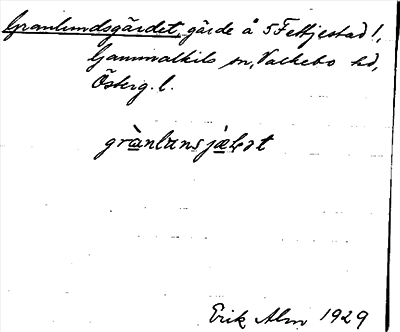 Granlundsgärdet, gärde å 5 Fettjestad 1,
Gammalkils sn, Valkebo hd,
Österg. l.
grànlunsjæḷət
Erik Alm 1929